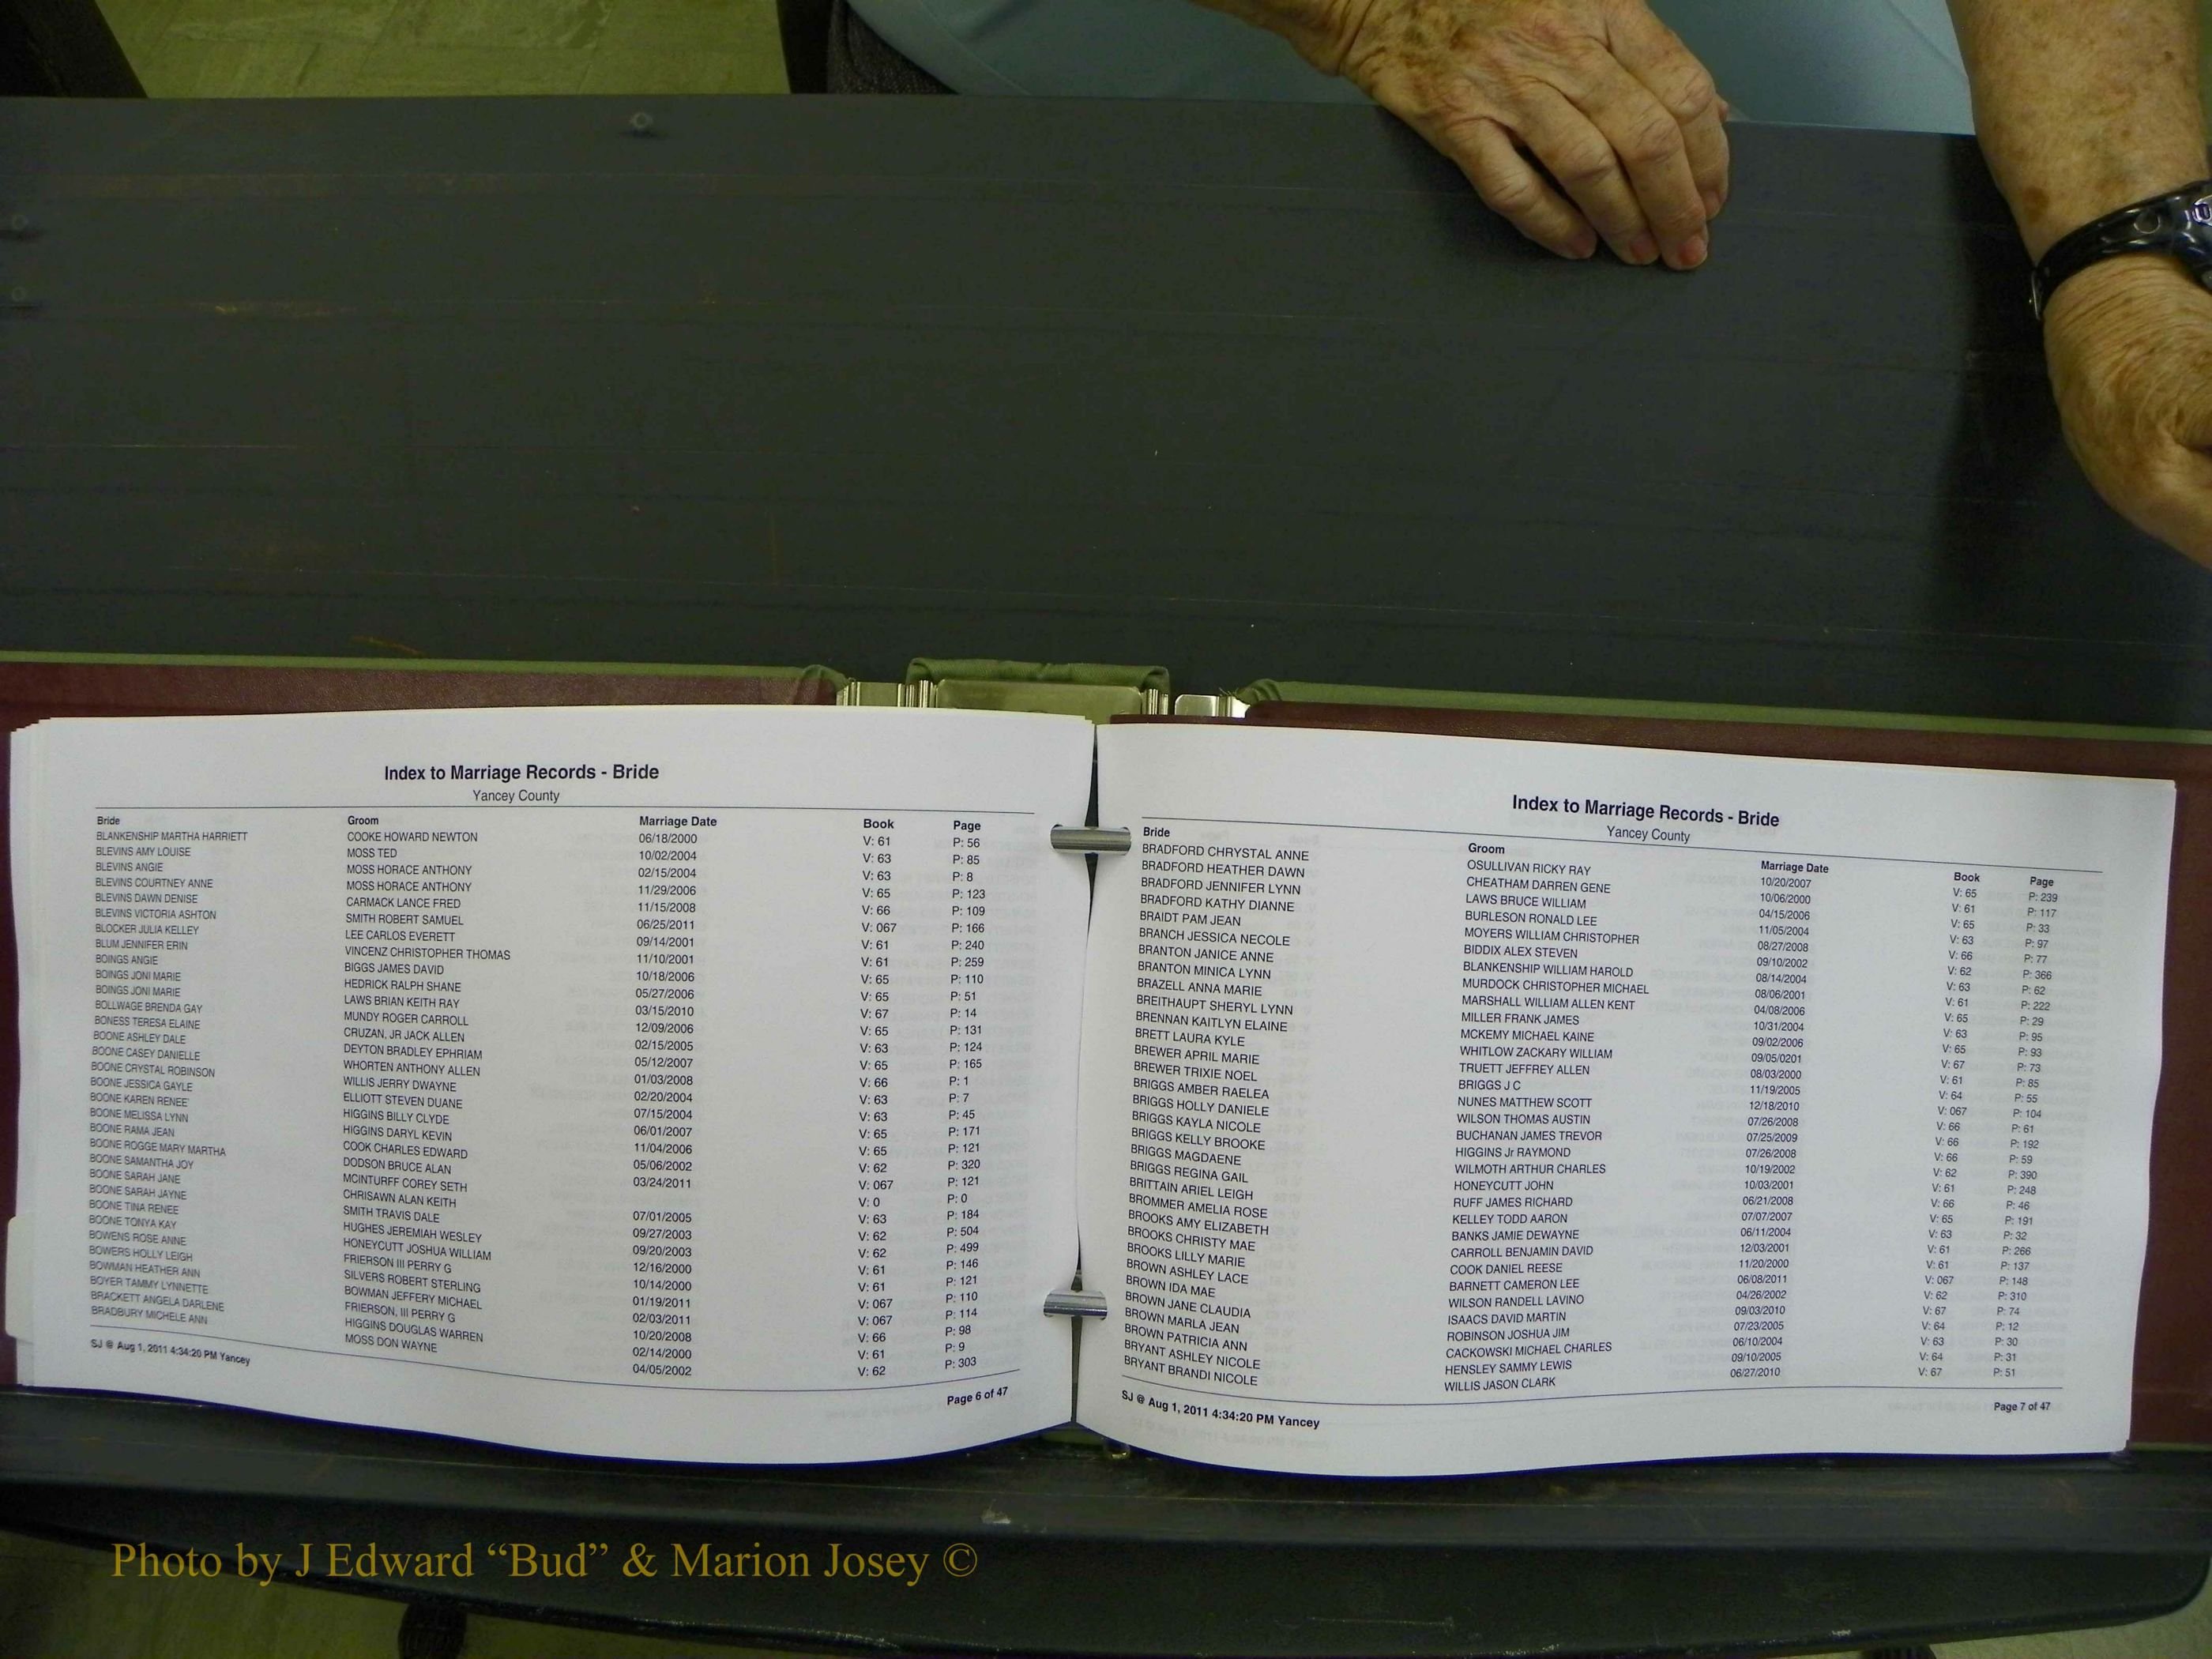 Index to Marriage Records - Bride
Yancey County
Bride Groom Marriage Date Book Page
BLANKENSHIP MARTHA HARRIETT COOKE HOWARD NEWTON 06/18/2000 V: 61 P: 56
BLEVINS AMY LOUISE MOSS TED 10/02/2004 V: 63 P: 85
BLEVINS ANGIE MOSS HORACE ANTHONY 02/15/2004 V: 63 P: 8
BLEVINS COURTNEY ANNE MOSS HORACE ANTHONY 11/29/2006 V: 65 P: 123
BLEVINS DAWN DENISE CARMACK LANCE FRED 11/15/2008 V: 66 P: 109
BLEVINS VICTORIA ASHTON SMITH ROBERT SAMUEL 06/25/2011 V: 067 P: 166
BLOCKER JULIA KELLEY LEE CARLOS EVERETT 09/14/2001 V: 61 P: 240
BLUM JENNIFER ERIN VINCENZ CHRISTOPHER THOMAS 11/10/2001 V: 61 P: 259
BOINGS ANGIE BIGGS JAMES DAVID 10/18/2006 V: 65 P: 110
BOINGS JONI MARIE HEDRICK RALPH SHANE 05/27/2006 V: 65 P: 51
BOINGS JONI MARIE LAWS BRIAN KEITH RAY 03/15/2010 V: 67 P: 14
BOLLWAGE BRENDA GAY MUNDY ROGER CARROLL 12/09/2006 V: 65 P: 131
BONESS TERESA ELAINE CRUZAN, JR JACK ALLEN 02/15/2005 V: 63 P: 124
BOONE ASHLEY DALE DEYTON BRADLEY EPHRIAM 05/12/2007 V: 65 P: 165
BOONE CASEY DANIELLE WHORTEN ANTHONY ALLEN 01/03/2008 V: 66 P: 1
BOONE CRYSTAL ROBINSON WILLIS JERRY DWAYNE 02/20/2004 V: 63 P: 7
BOONE JESSICA GAYLE ELLIOTT STEVEN DUANE 07/15/2004 V: 63 P: 45
BOONE KAREN RENEE HIGGINS BILLY CLYDE 06/01/2007 V: 65 P: 171
BOONE MELISSA LYNN HIGGINS DARYL KEVIN 11/04/2006 V: 65 P: 121
BOONE RAMA JEAN COOK CHARLES EDWARD 05/06/2002 V: 62 P: 320
BOONE ROGGE MARY MARTHA DODSON BRUCE ALAN 03/24/2011 V: 067 P: 121
BOONE SAMANTHA JOY MCINTURFF COREY SETH V: 0 P: 0
BOONE SARAH JANE CHRISAWN ALAN KEITH 07/01/2005 V: 63 P: 184
BOONE SARAH JAYNE SMITH TRAVIS DALE 09/27/2003 V: 62 P: 504
BOONE TINA RENEE HUGHES JEREMIAH WESLEY 09/20/2003 V: 62 P: 499
BOONE TONYA KAY HONEYCUTT JOSHUA WILLIAM 12/16/2000 V: 61 P: 146
BOWENS ROSE ANNE FRIERSON III PERRY G 10/14/2000 V: 61 P: 121
BOWERS HOLLY LEIGH SILVERS ROBERT STERLING 01/19/2011 V: 067 P: 110
BOWMAN HEATHER ANN BOWMAN JEFFERY MICHAEL 02/03/2011 V: 067 P: 114
BOYER TAMMY LYNNETTE FRIERSON, III PERRY G 10/20/2008 V: 66 P: 98
BRACKETT ANGELA DARLENE HIGGINS DOUGLAS WARREN 02/14/2000 V: 61 P: 9
BRADBURY MICHELE ANN MOSS DON WAYNE 04/05/2002 V: 62 P: 303
SJ @ Aug 1, 2011 4:34:20 PM Yancey Page 6 of 47
Index to Marriage Records - Bride
Yancey County
Bride Groom Marriage Date Book Page
BRADFORD CHRYSTAL ANNE OSULLIVAN RICKY RAY 10/20/2007 V: 65 P: 239
BRADFORD HEATHER DAWN CHEATHAM DARREN GENE 10/06/2000 V: 61 P: 117
BRADFORD JENNIFER LYNN LAWS BRUCE WILLIAM 04/15/2006 V: 65 P: 33
BRADFORD KATHY DIANNE BURLESON RONALD LEE 11/05/2004 V: 63 P: 97
BRAIDT PAM JEAN MOYERS WILLIAM CHRISTOPHER 08/27/2008 V: 66 P: 77
BRANCH JESSICA NECOLE BIDDIX ALEX STEVEN 09/10/2002 V: 62 P: 366
BRANTON JANICE ANNE BLANKENSHIP WILLIAM HAROLD 08/14/2004 V: 63 P: 62
BRANTON MINICA LYNN MURDOCK CHRISTOPHER MICHAEL 08/06/2001 V: 61 P: 222
BRAZELL ANNA MARIE MARSHALL WILLIAM ALLEN KENT 04/08/2006 V: 65 P: 29
BREITHAUPT SHERYL LYNN MILLER FRANK JAMES 10/31/2004 V: 63 P: 95
BRENNAN KAITLYN ELAINE MCKEMY MICHAEL KAINE 09/02/2006 V: 65 P: 93
BRETT LAURA KYLE WHITLOW ZACKARY WILLIAM 09/05/0201 V: 67 P: 73
BREWER APRIL MARIE TRUETT JEFFREY ALLEN 08/03/2000 V: 61 P: 85
BREWER TRIXIE NOEL BRIGGS J C 11/19/2005 V: 64 P: 55
BRIGGS AMBER RAELEA NUNES MATTHEW SCOTT 12/18/2010 V: 067 P: 104
BRIGGS HOLLY DANIELE WILSON THOMAS AUSTIN 07/26/2008 V: 66 P: 61
BRIGGS KAYLA NICOLE BUCHANAN JAMES TREVOR 07/25/2009 V: 66 P: 192
BRIGGS KELLY BROOKE HIGGINS Jr RAYMOND 07/26/2008 V: 66 P: 59
BRIGGS MAGDAENE WILMOTH ARTHUR CHARLES 10/19/2002 V: 62 P: 390
BRIGGS REGINA GAIL HONEYCUTT JOHN 10/03/2001 V: 61 P: 248
BRITTAIN ARIEL LEIGH RUFF JAMES RICHARD 06/21/2008 V: 66 P: 46
BROMMER AMELIA ROSE KELLEY TODD AARON 07/07/2007 V: 65 P: 191
BROOKS AMY ELIZABETH BANKS JAMIE DEWAYNE 06/11/2004 V: 63 P: 32
BROOKS CHRISTY MAE CARROLL BENJAMIN DAVID 12/03/2001 V: 61 P: 266
BROOKS LILLY MARIE COOK DANIEL REESE 11/20/2000 V: 61 P: 137
BROWN ASHLEY LACE BARNETT CAMERON LEE 06/08/2011 V: 067 P: 148
BROWN IDA MAE WILSON RANDELL LAVINO 04/26/2002 V: 62 P: 310
BROWN JANE CLAUDIA ISAACS DAVID MARTIN 09/03/2010 V: 67 P: 74
BROWN MARLA JEAN ROBINSON JOSHUA JIM 07/23/2005 V: 64 P: 12
BROWN PATRICIA ANN CACKOWSKI MICHAEL CHARLES 06/10/2004 V: 63 P: 30
BRYANT ASHLEY NICOLE HENSLEY SAMMY LEWIS 09/10/2005 V: 64 P: 31
BRYANT BRANDI NICOLE WILLIS JASON CLARK 06/27/2010 V: 67 P: 51
SJ @ Aug 1, 2011 4:34:20 PM Yancey Page 7 of 47
Photo by J Edward “Bud” & Marion Josey ©